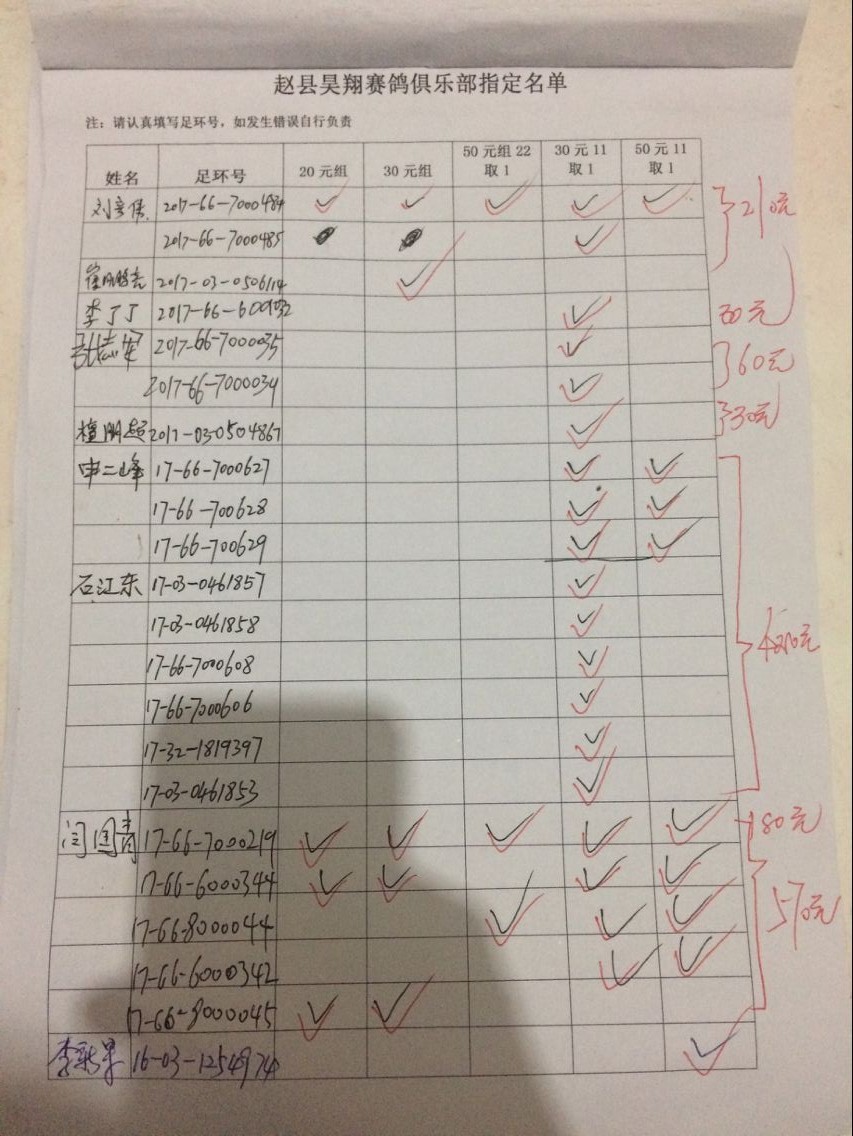 赵县昊翔赛鸽俱乐部指定名单
注：请认真填写足环号，如发生错误自行负责
姓名 足环号 20元组 30元组 50元组22取1 30元11取1 50元11取1
刘彦伟 2017-66-7000484 ✓ ✓ ✓ ✓ ✓ 210元
2017-66-7000485 ✓
2017-03-0506114 ✓
李丁丁 2017-66-600932 ✓ 30元
张志军 2017-66-7000035 ✓ 60元
2017-66-7000034 ✓
檀朋超 2017-03-0504867 ✓ 30元
申二峰 17-66-7000627 ✓ ✓
17-66-700628 ✓ ✓
17-66-700629 ✓ ✓
石江东 17-03-0461857 ✓
17-03-0461858 ✓
17-66-7000608 ✓
17-66-7000606 ✓
17-32-1819397 ✓
17-03-0461853 ✓
闫国青 17-66-7000219 ✓ ✓ ✓ ✓ ✓ 180元
17-66-6000344 ✓ ✓ ✓ ✓
17-66-8000044 ✓ ✓ ✓ 570元
17-66-6000342 ✓ ✓
17-66-8000045 ✓ ✓
16-03-1254974 ✓